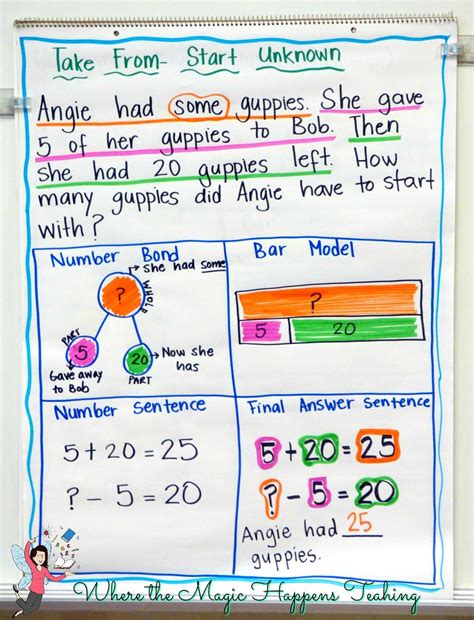 Take From- Start Unknown
Angie had some guppies. She gave
5 of her guppies to Bob. Then
she had 20 guppies left. How
many guppies did Angie have to start
with?
Number Bond
she had some
?
WHOLE
PART
5
Gave away
to Bob
20
PART
Now she
has
Bar Model
?
5 20
Number Sentence
5+20=25
?-5=20
Final Answer Sentence
5+20=25
?-5=20
Angie had 25
guppies.
Where the Magic Happens Teahing